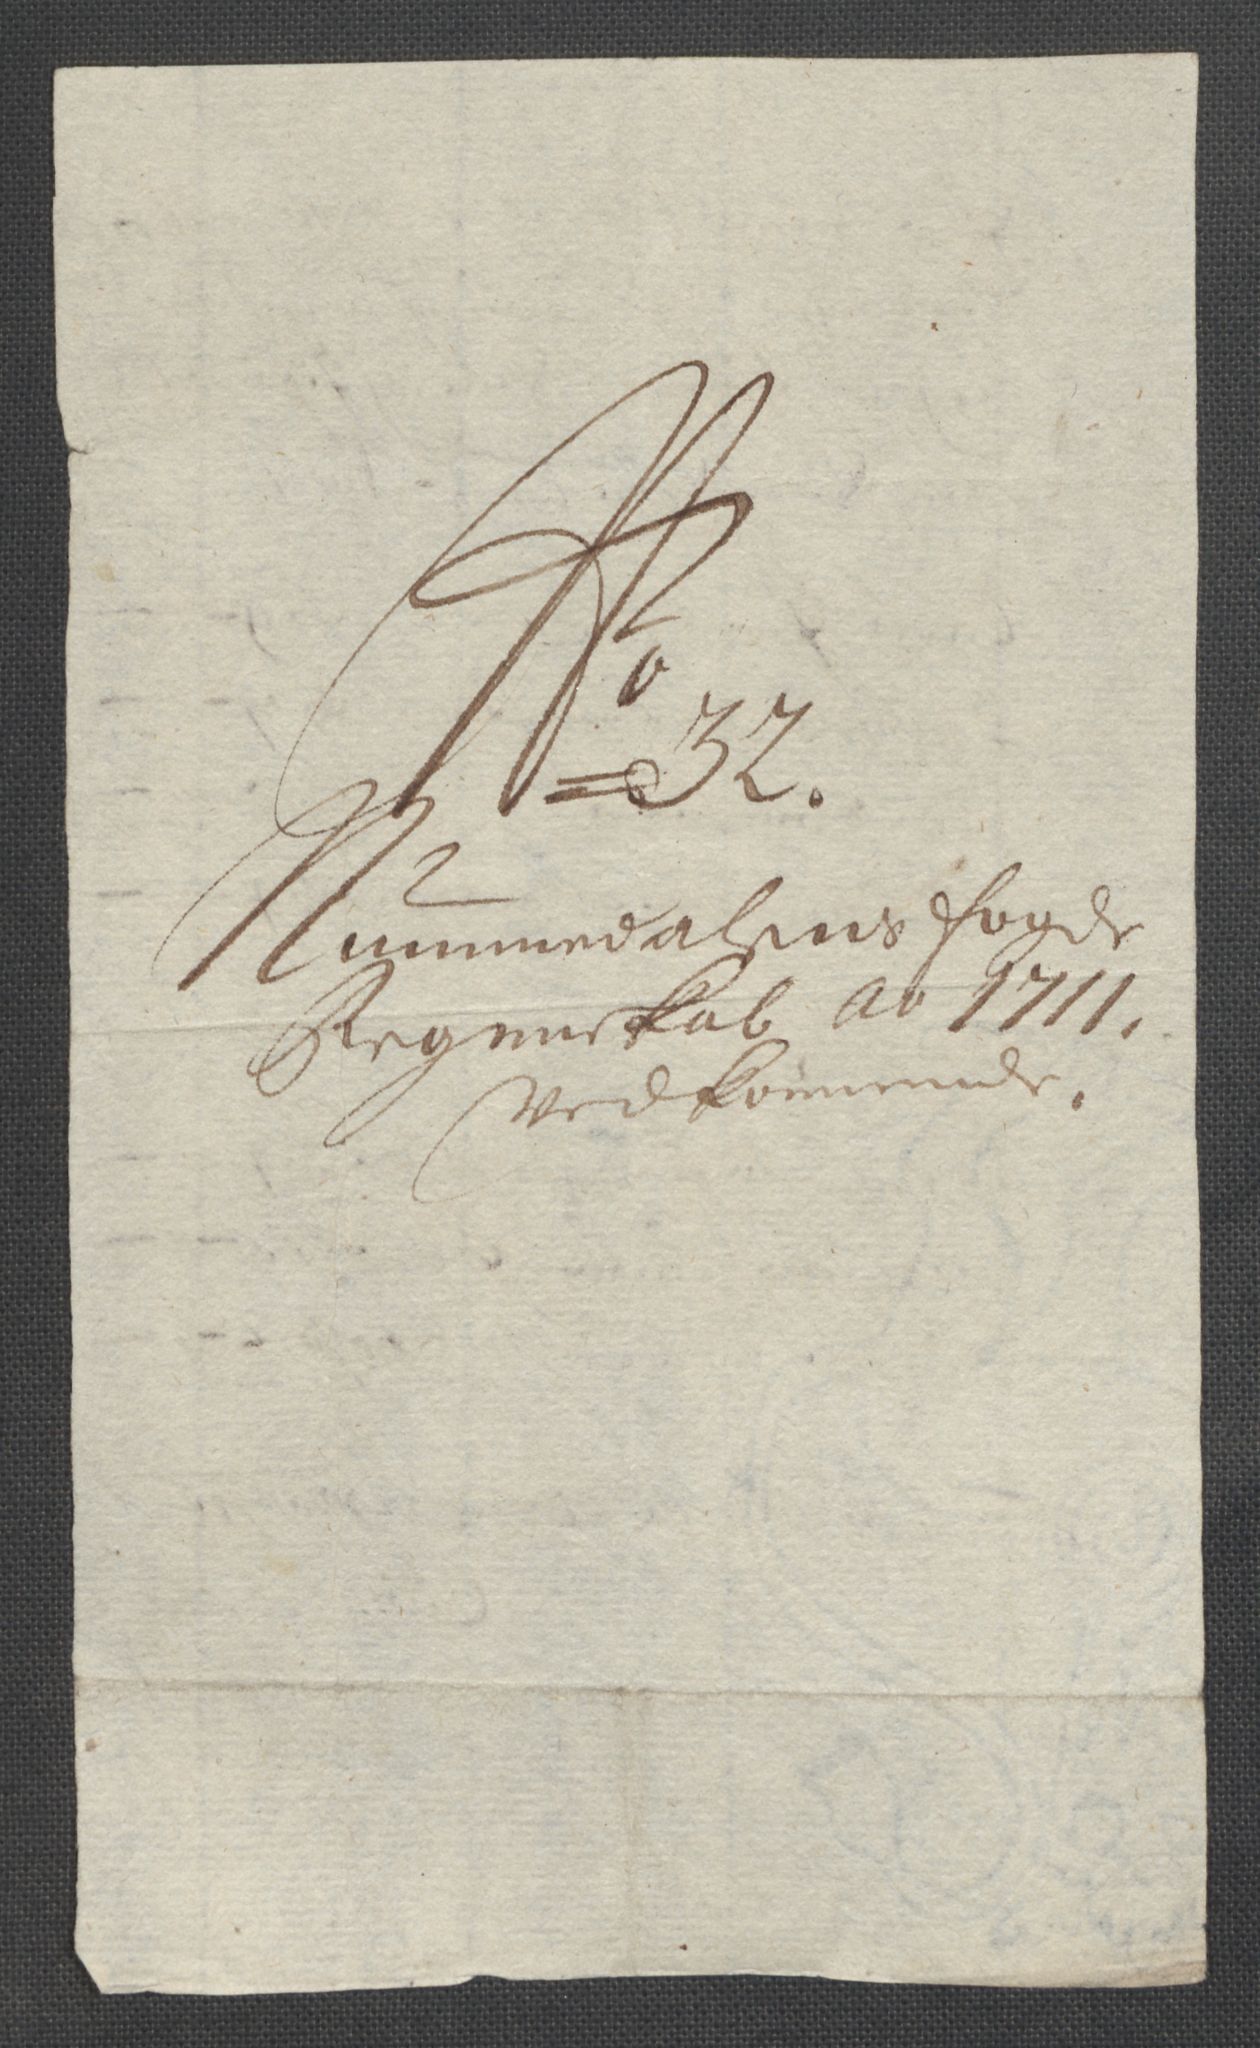 No
32.
Nummedahlens fogde
Regenskab ao 1711.
Vedkommende.